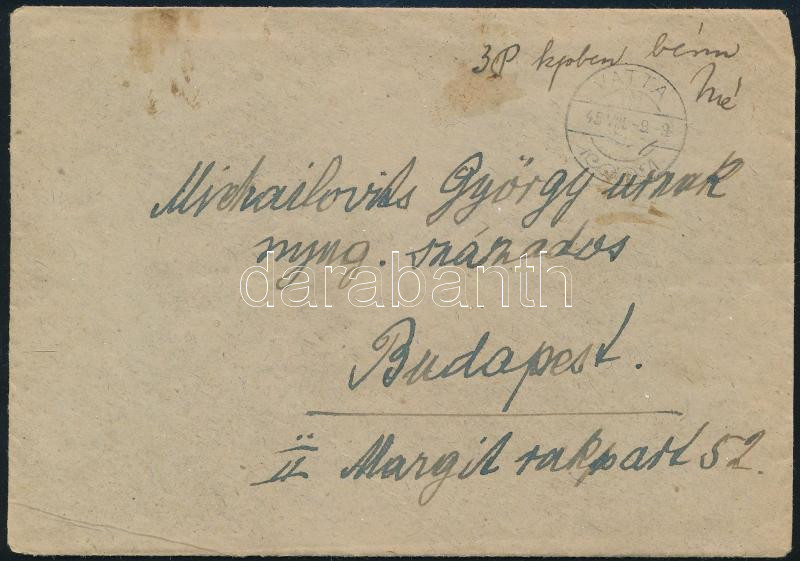 3P kpben bérm
VATTA
45 VIII. -9. -9
Michailovits György urnak
nyug. százados
darabanth
Budapest.
II Margit rakpart 52.